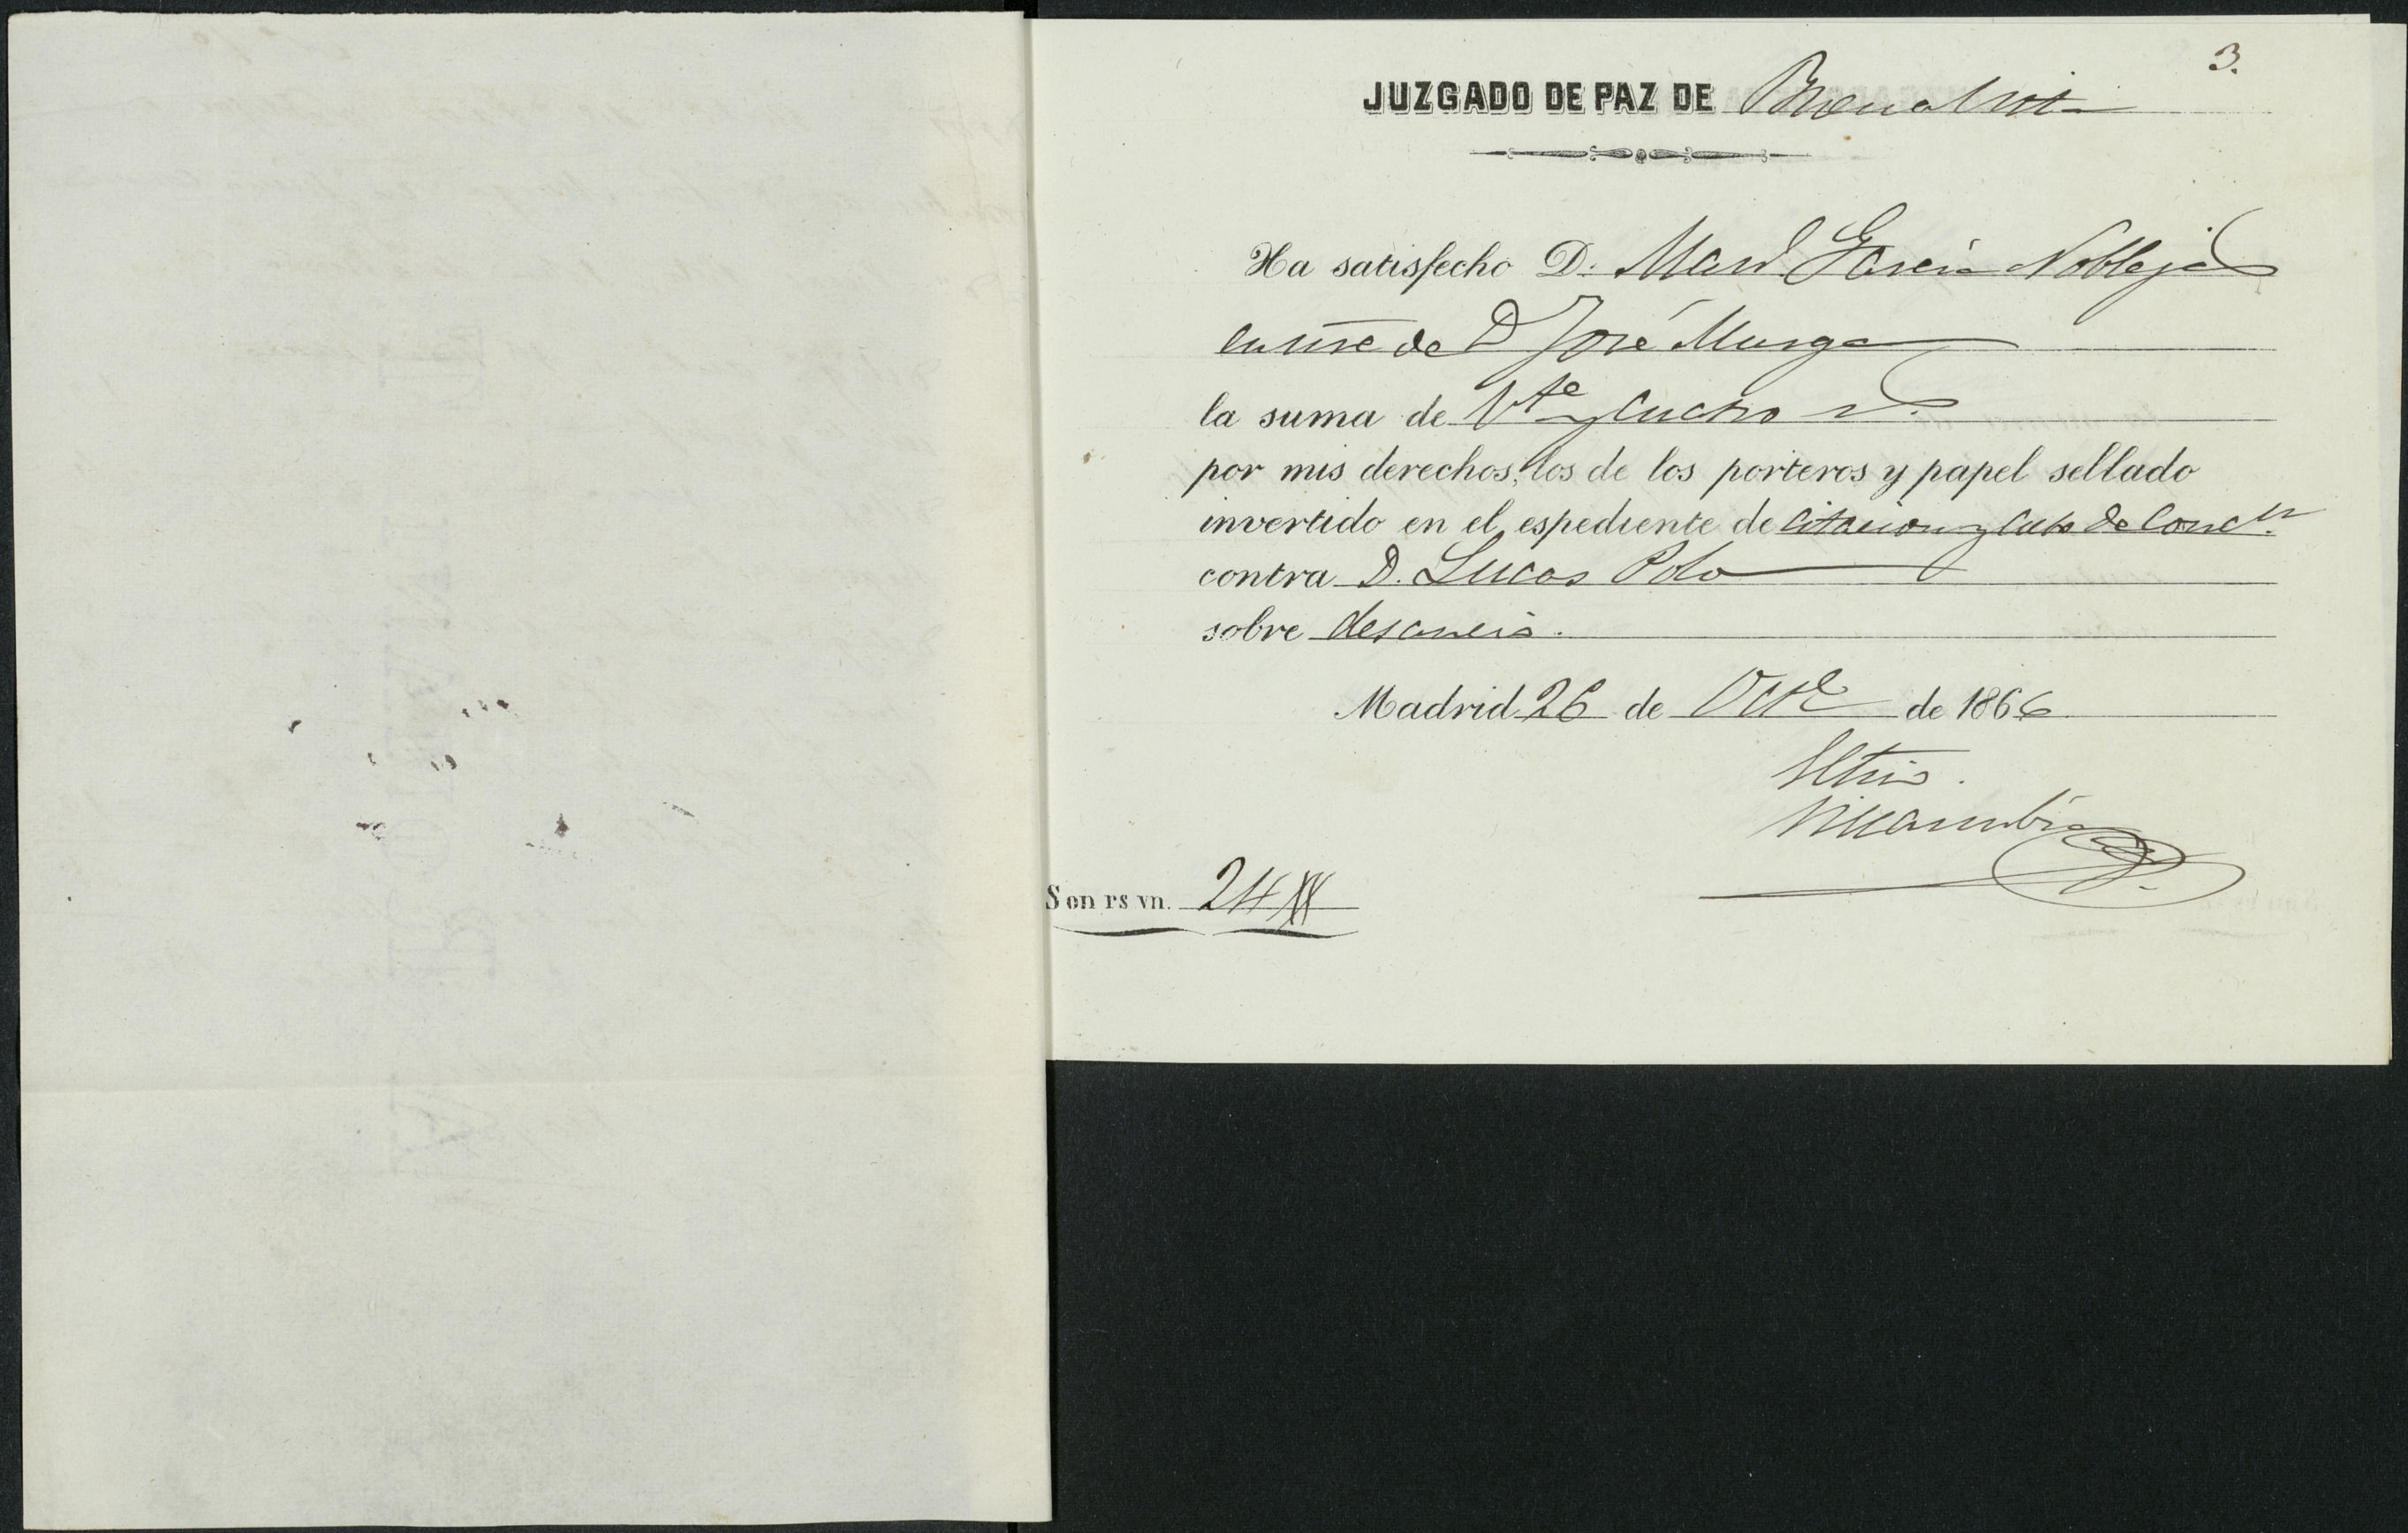 3.
JUZGADO DE PAZ DE Buenavista
Ha satisfecho D. Man.l Garcia Noblejas
en nre de D José Murga
la suma de Vte y cuatro rs.
por mis derechos, los de los porteros y papel sellado
invertido en el espediente de citacion y acto de Conc.on
contra D. Lucas Polo
sobre desaucio.
Madrid 26 de Oct.e de 1866
El Srio.
Son rs vn. 24